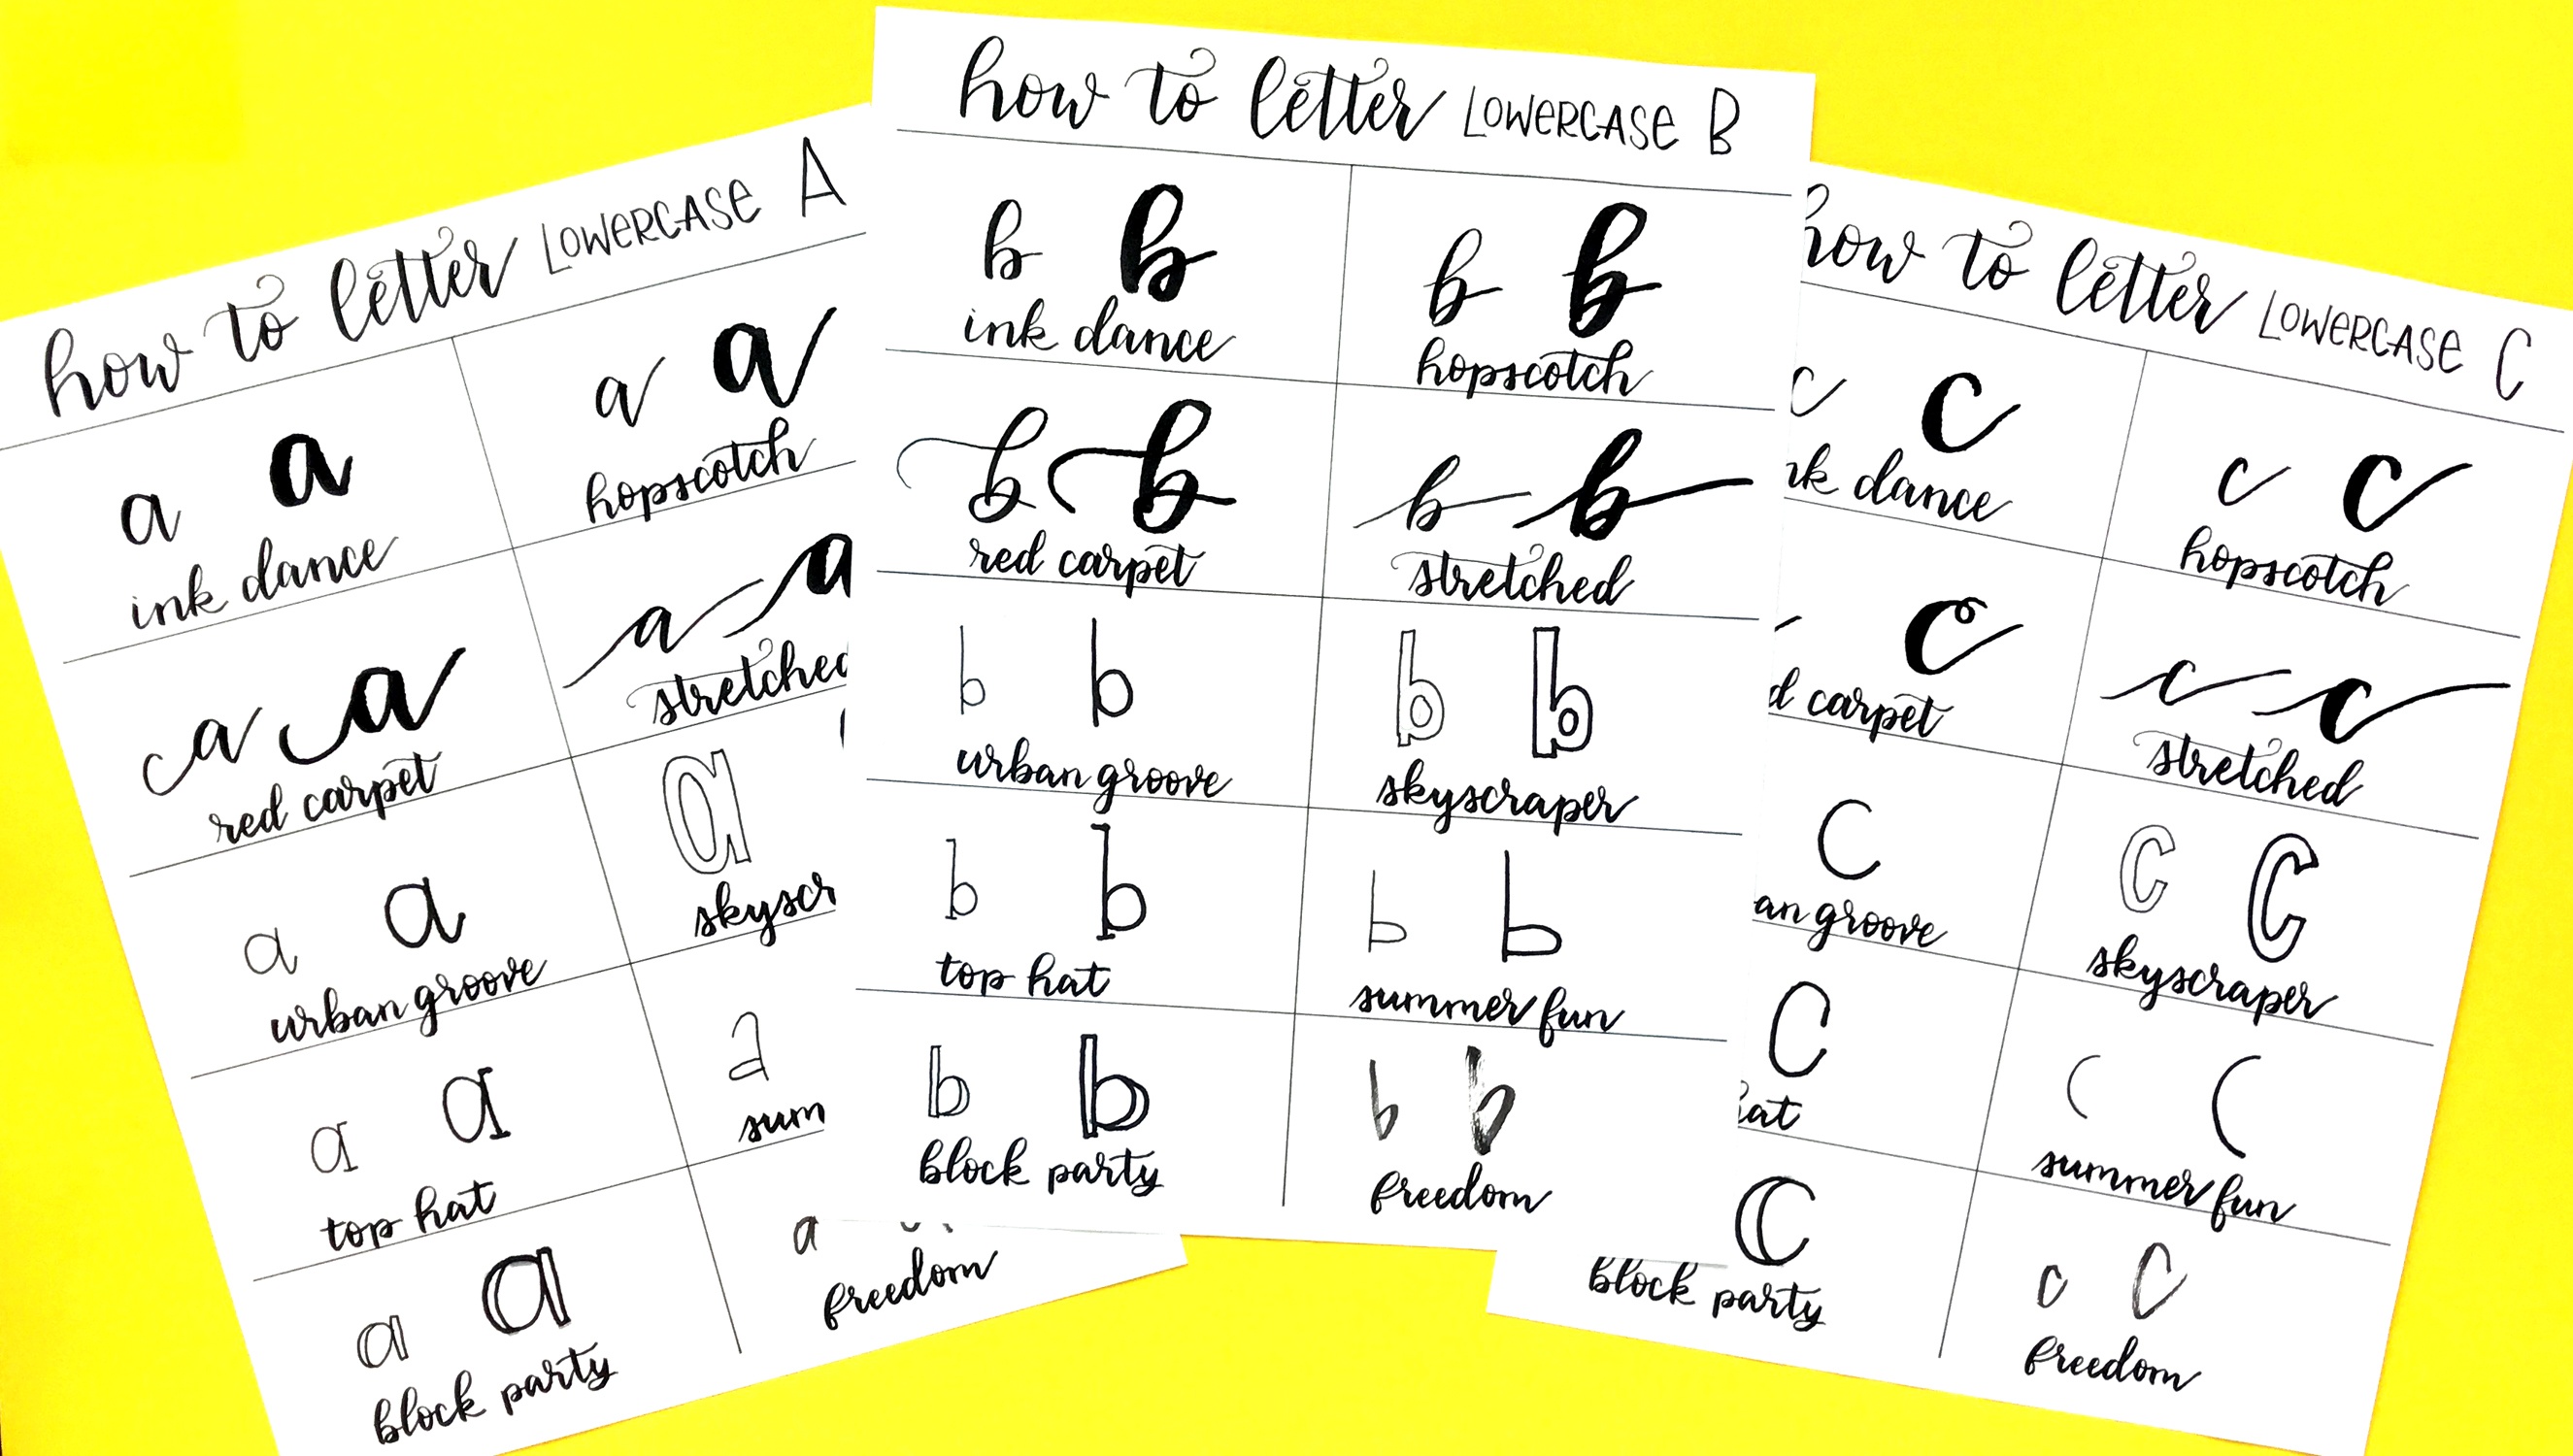 how to letter LOWERCASE A
a a
ink dance
a a
hopscotch
a a
red carpet
a a
stretched
a a
urban groove
a
skyscr
a a
top hat
a
sum
a a
block party
a
freedom
how to letter LOWERCASE B
b b
ink dance
b b
hopscotch
b b
red carpet
b b
stretched
b b
urban groove
b b
skyscraper
b b
top hat
b b
summer fun
b b
block party
b b
freedom
how to letter LOWERCASE C
c c
nk dance
c c
hopscotch
c
d carpet
c c
stretched
c
an groove
c c
skyscraper
c
at
c c
summer fun
c
block party
c c
freedom